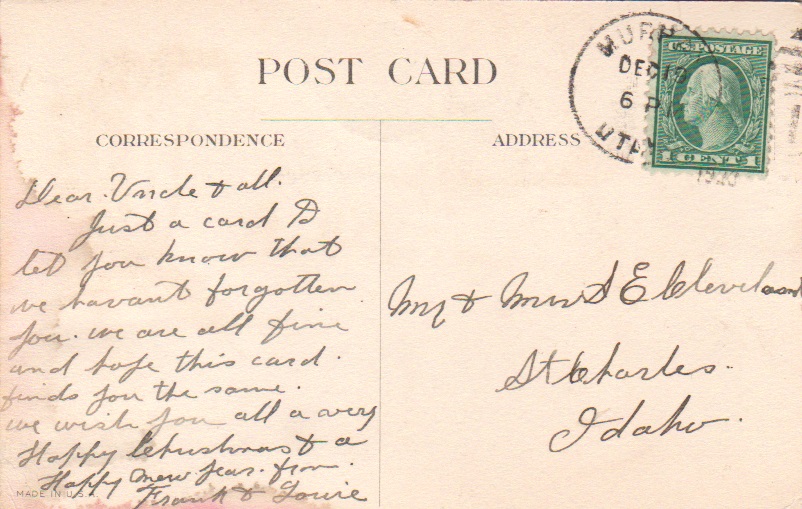 POST CARD
CORRESPONDENCE
ADDRESS
MURR
DEC 19
6 P
UTAH
U.S. POSTAGE
1 CENT 1
Dear Uncle & all.
Just a card to
let you know that
we havant forgotten
you. we are all fine
and hope this card.
finds you the same.
we wish you all a very
Happy Christmas & a
Happy new year. from.
Frank & Louie
MADE IN U.S.A.
Mr & Mrs S E Cleveland
St Charles.
Idaho.